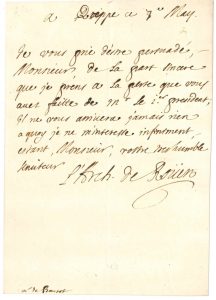 a Dieppe ce 3e May
Je vous prie d'estre persuadé,
Monsieur, de la part sincere
que je prens a la perte que vous
avez faitte de Mr. le 1er president,
Il ne vous arrivera jamais rien
a quoy je ne m'interesse infiniment,
estant, Monsieur, vostre tres humble
serviteur
l'Arch. de Rouen
Mr de